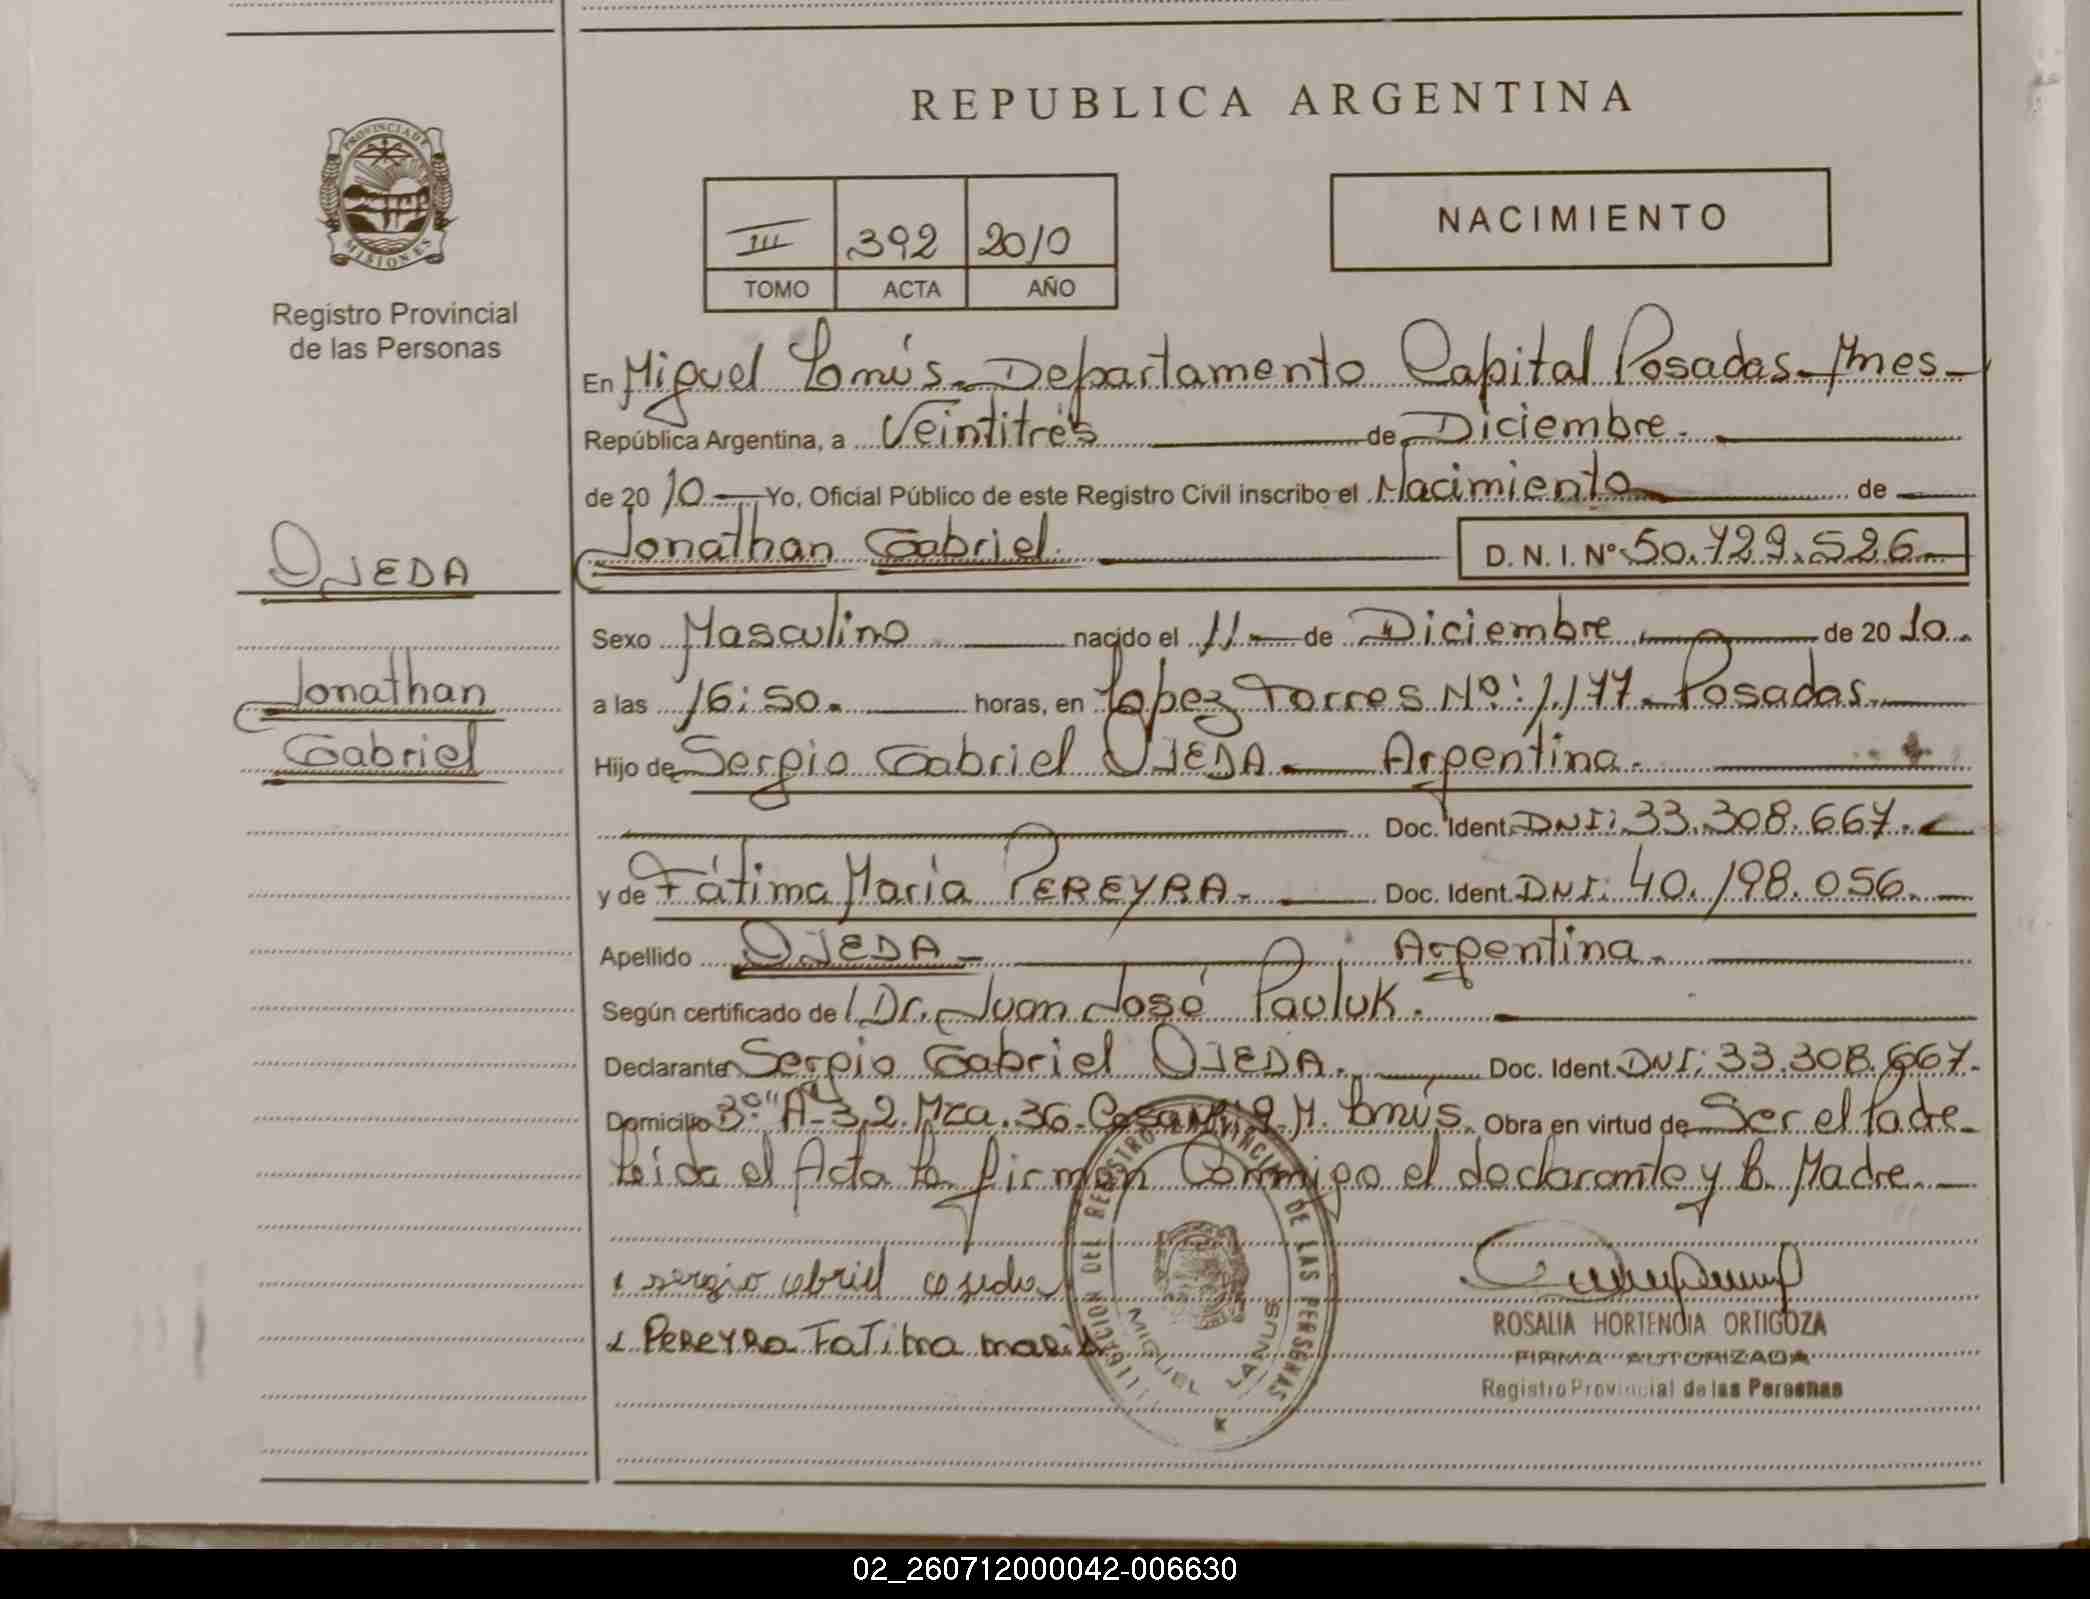 REPUBLICA ARGENTINA
PROVINCIA DE
MISIONES
Registro Provincial
de las Personas
III 392 2010
TOMO ACTA AÑO
NACIMIENTO
En Miguel Lanús - Departamento Capital Posadas - Mnes -
República Argentina, a Veintitrés de Diciembre.
de 20 10 Yo, Oficial Público de este Registro Civil inscribo el Nacimiento de
Jonathan Gabriel. D. N. I. Nº 50.729.526.
OJEDA
Jonathan
Gabriel
Sexo Masculino nacido el 11 - de Diciembre de 20 10.
a las 16:50. horas, en Lopez Torres Nº: 1.177. Posadas.
Hijo de Sergio Gabriel OJEDA. Argentina.
Doc. Ident. DNI: 33.308.667.
y de Fátima María PEREYRA. Doc. Ident. DNI: 40.198.056.
Apellido OJEDA - Argentina.
Según certificado de l Dr. Juan José Pauluk.
Declarante Sergio Gabriel OJEDA. Doc. Ident. DNI: 33.308.667.
Domicilio 3º "A" 32. Mza. 36. Casa Nº 9. M. Lanús. Obra en virtud de Ser el Padre.
Leída el Acta la firman Conmigo el declarante y la Madre.
sergio abriel ojeda
PEREYRA FaTima maria
DEL REGISTRO PROVINCIAL DE LAS PERSONAS
MIGUEL LANUS
ROSALIA HORTENCIA ORTIGOZA
FIRMA AUTORIZADA
Registro Provincial de las Personas
02_260712000042-006630